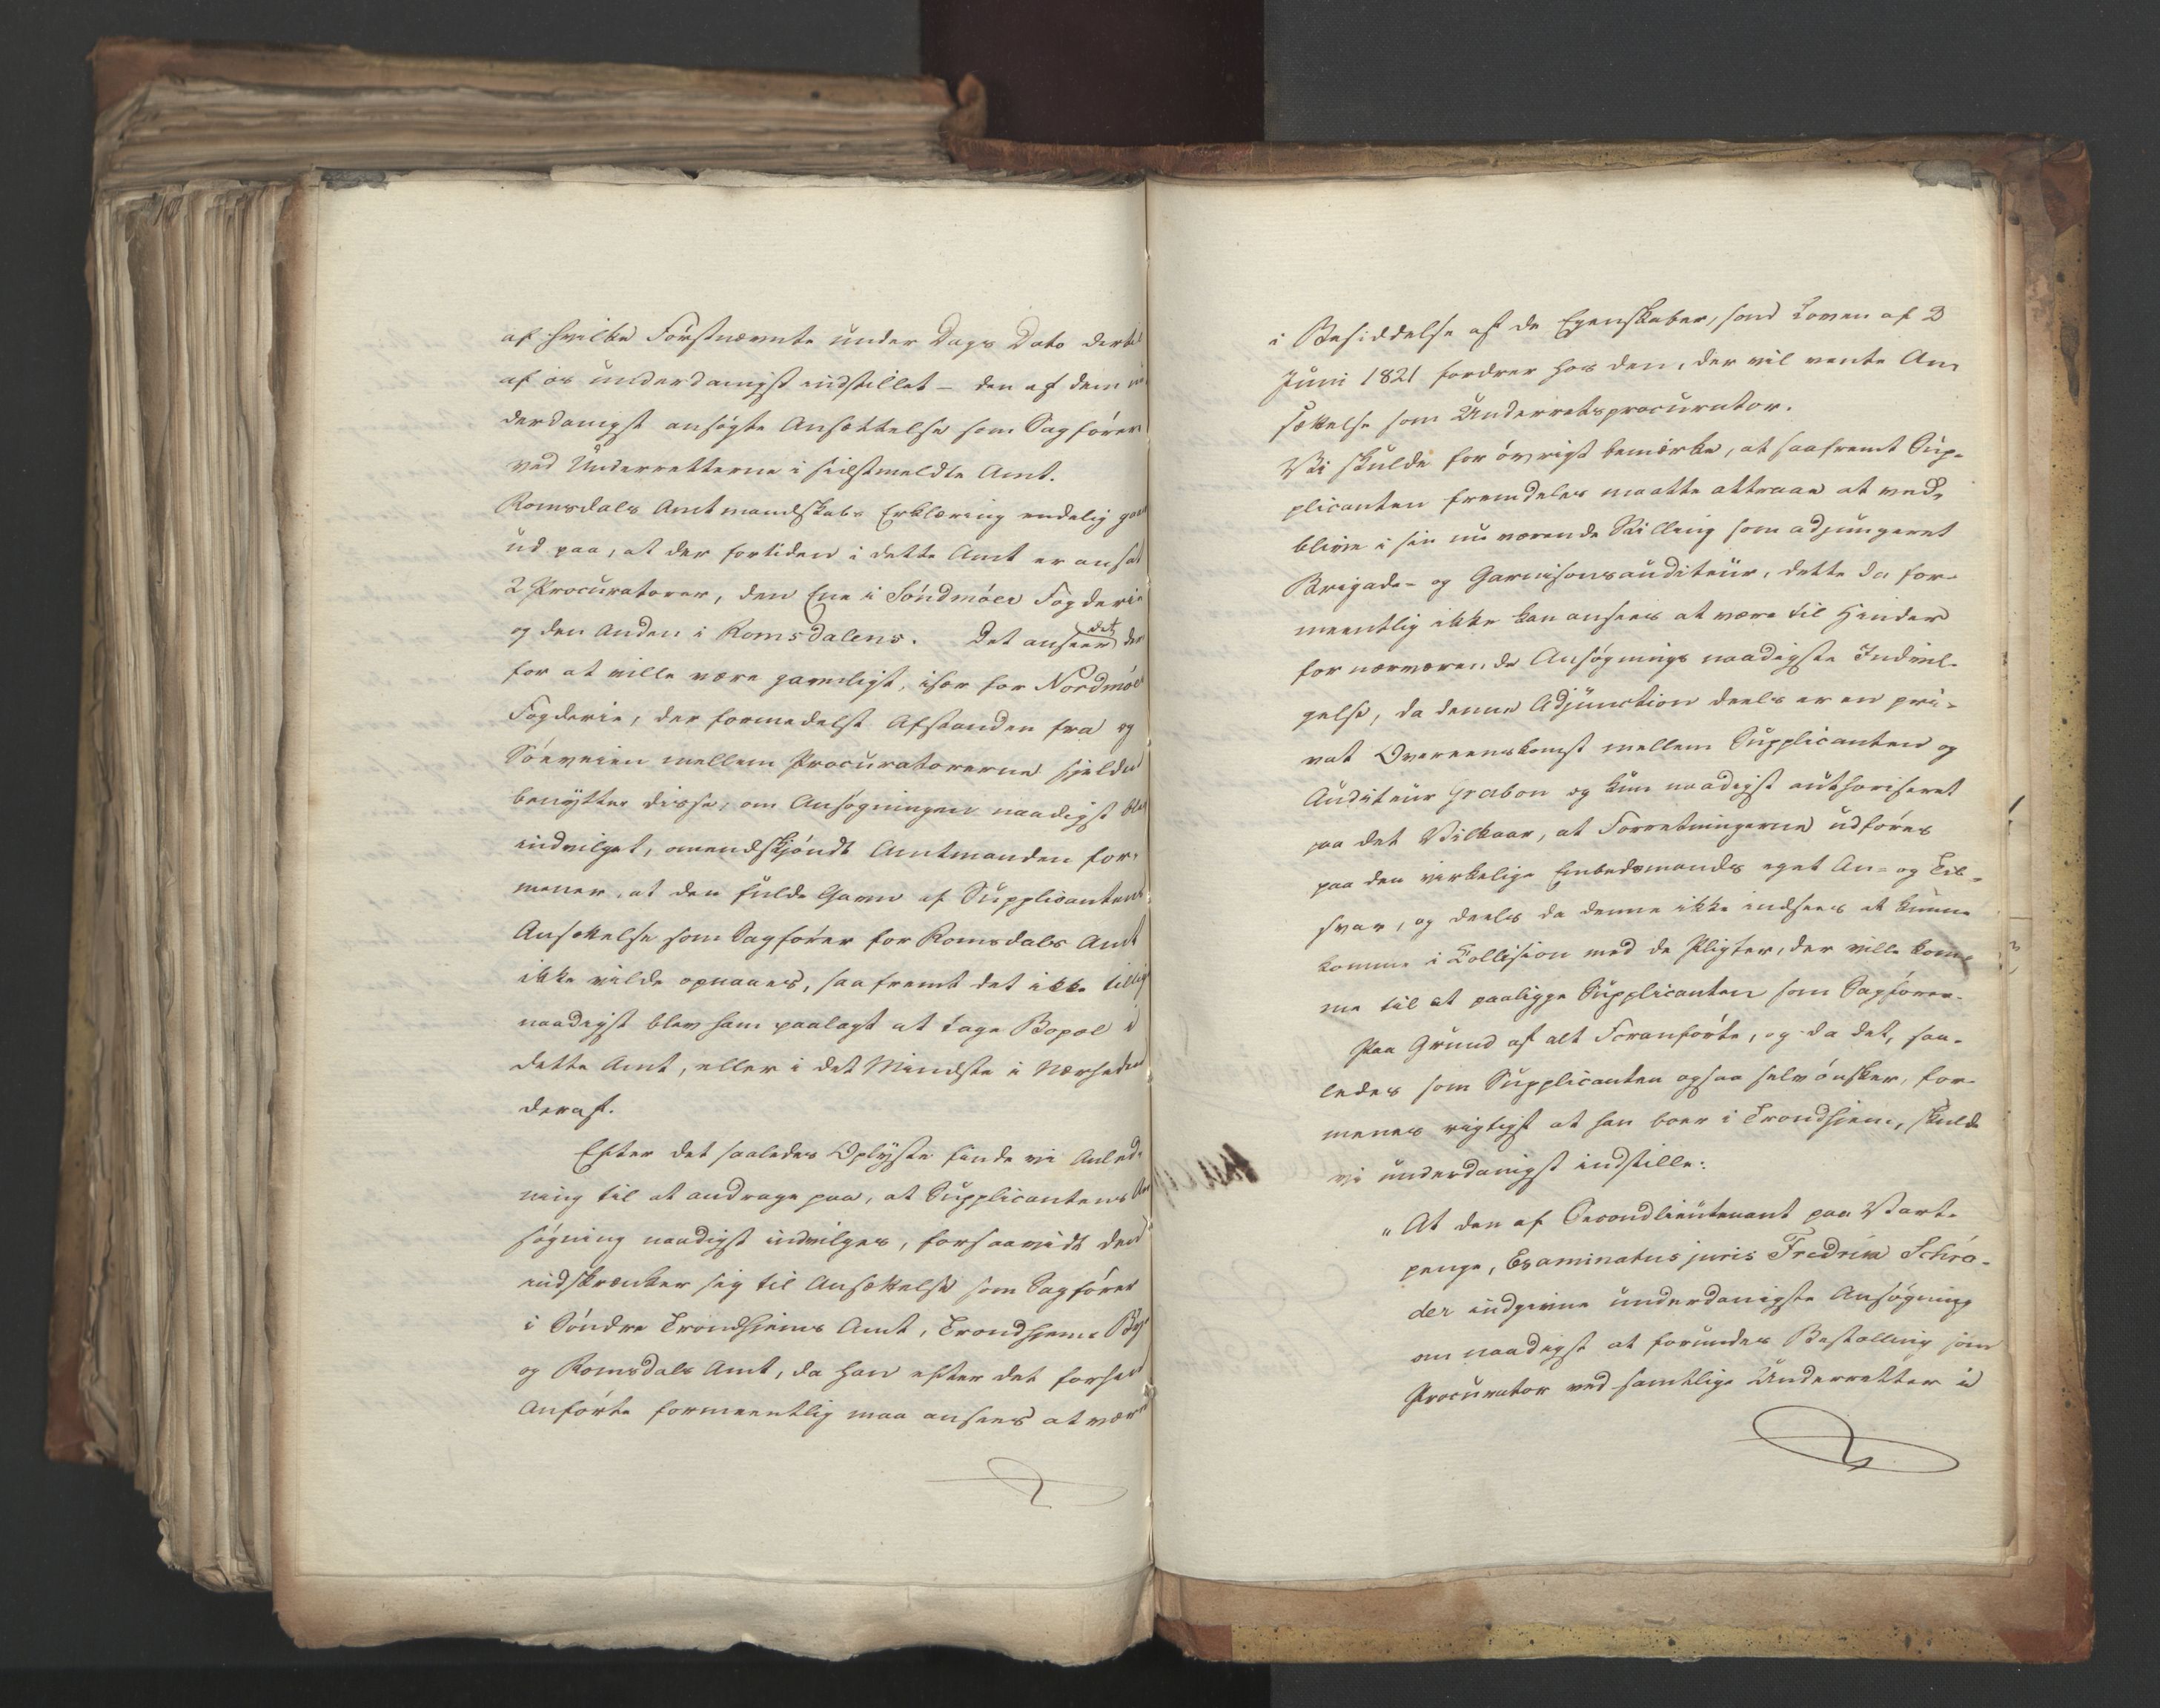 af hvilke Förstnævnte under Dags Dato dertil
af os underdanigst indstillet – den af dem un
derdanigst ansögte Ansættelse som Sagförer
ved Underretterne i sidstmeldte Amt.
Romsdals Amtmandskabs Erklæring endelig gaaer
ud paa, at der fortiden i dette Amt er ansat
2 Procuratorer, den Ene i Söndmöers Fogderie
og den Anden i Romsdalens. Det ansees det der
for at ville være gavnligt, især for Nordmöers
Fogderie, der formedelst Afstanden fra og
Söeveien mellem Procuratorerne sjelden
benytter disse, om Ansögningen naadigst blev
indvilget, omendskjöndt Amtmanden for-
mener, at den fulde Gavn af Supplicantens
Ansættelse som Sagförer for Romsdals Amt
ikke vilde opnaaes, saafremt det ikke tillige
naadigst blev ham paalagt at tage Bopæl i
dette Amt, eller i det Mindste i Nærheden
deraf.
Efter det saaledes Oplyste finde vi Anled-
ning til at andrage paa, at Supplicantens An
søgning naadigst indvilges, forsaavidt den
indskrænker sig til Ansættelse som Sagförer
i Söndre Trondhjems Amt, Trondhjems By
og Romsdals Amt, da han efter det forhen
Anförte formeentlig maa ansees at være
i Besiddelse af de Egenskaber, som Loven af 2
Juni 1821 fordrer hos den, der vil vente An
sættelse som Underretsprocurator.
Vi skulde for övrigt bemærke, at saafremt Sup-
plicanten fremdeles maatte attraae at ved-
blive i sin nu værende Stilling som adjungeret
Brigade- og Garnisonsauditeur, dette da for-
meentlig ikke kan ansees at være til Hinder
for nærværende Ansøgnings naadigste Indvil-
gelse, da denne Adjunction deels er en pri-
vat Overeenskomst mellem Supplicanten og
Auditeur Grabow og kun naadigst authoriseret
paa det Vilkaar, at Forretningerne udföres
paa den virkelige Embedsmands eget An- og Til-
svar, og deels da denne ikke indsees at kunne
komme i Collision med de Pligter, der ville kom-
me til at paaligge Supplicanten som Sagförer.
Paa Grund af alt Foranförte, og da det, saa-
ledes som Supplicanten ogsaa selv önsker, for-
menes rigtigst at han boer i Trondhjem, skulde
vi underdanigst indstille:
„At den af Secondlieutenant paa Vart-
penge, Examinatus juris Fredrik Schrö-
der indgivne underdanigste Ansögning
om naadigst at forundes Bestalling som
Procurator ved samtlige Underretter i